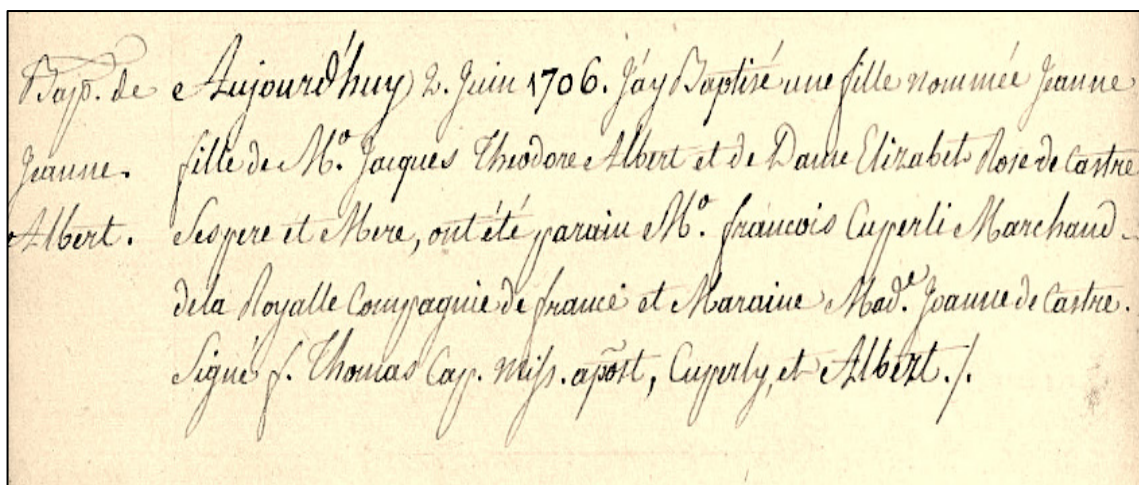 Bapt. de Aujourd'huy 2. Juin 1706. J'áy Baptisé une fille nommée Jeanne
Jeanne. fille de Mº. Jacques Theodore Albert et de Dame Elizabet Rose de Castre
Albert. Ses pere et Mere, ont été parain Mº. francois Cuperli Marchand
de la Royalle Compagnie de france et Maraine Mad.e Jeanne de Castre.
Signé f. Thomas Cap. Miss. apõst, Cuperly, et Albert ./.